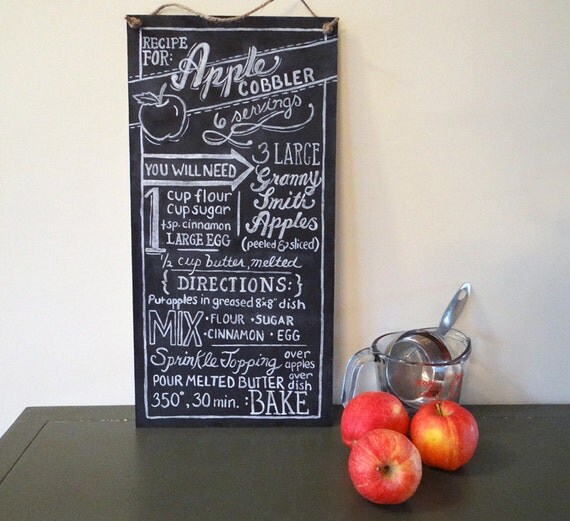 RECIPE
FOR:
Apple
COBBLER
6 servings
YOU WILL NEED
3 LARGE
Granny
Smith
Apples
(peeled & sliced)
1 cup flour
cup sugar
tsp. cinnamon
LARGE EGG
1/2 cup butter, melted
{DIRECTIONS:}
Put apples in greased 8"x8" dish
MIX • FLOUR • SUGAR
• CINNAMON • EGG
Sprinkle Topping over apples
POUR MELTED BUTTER over dish
350°, 30 min. : BAKE